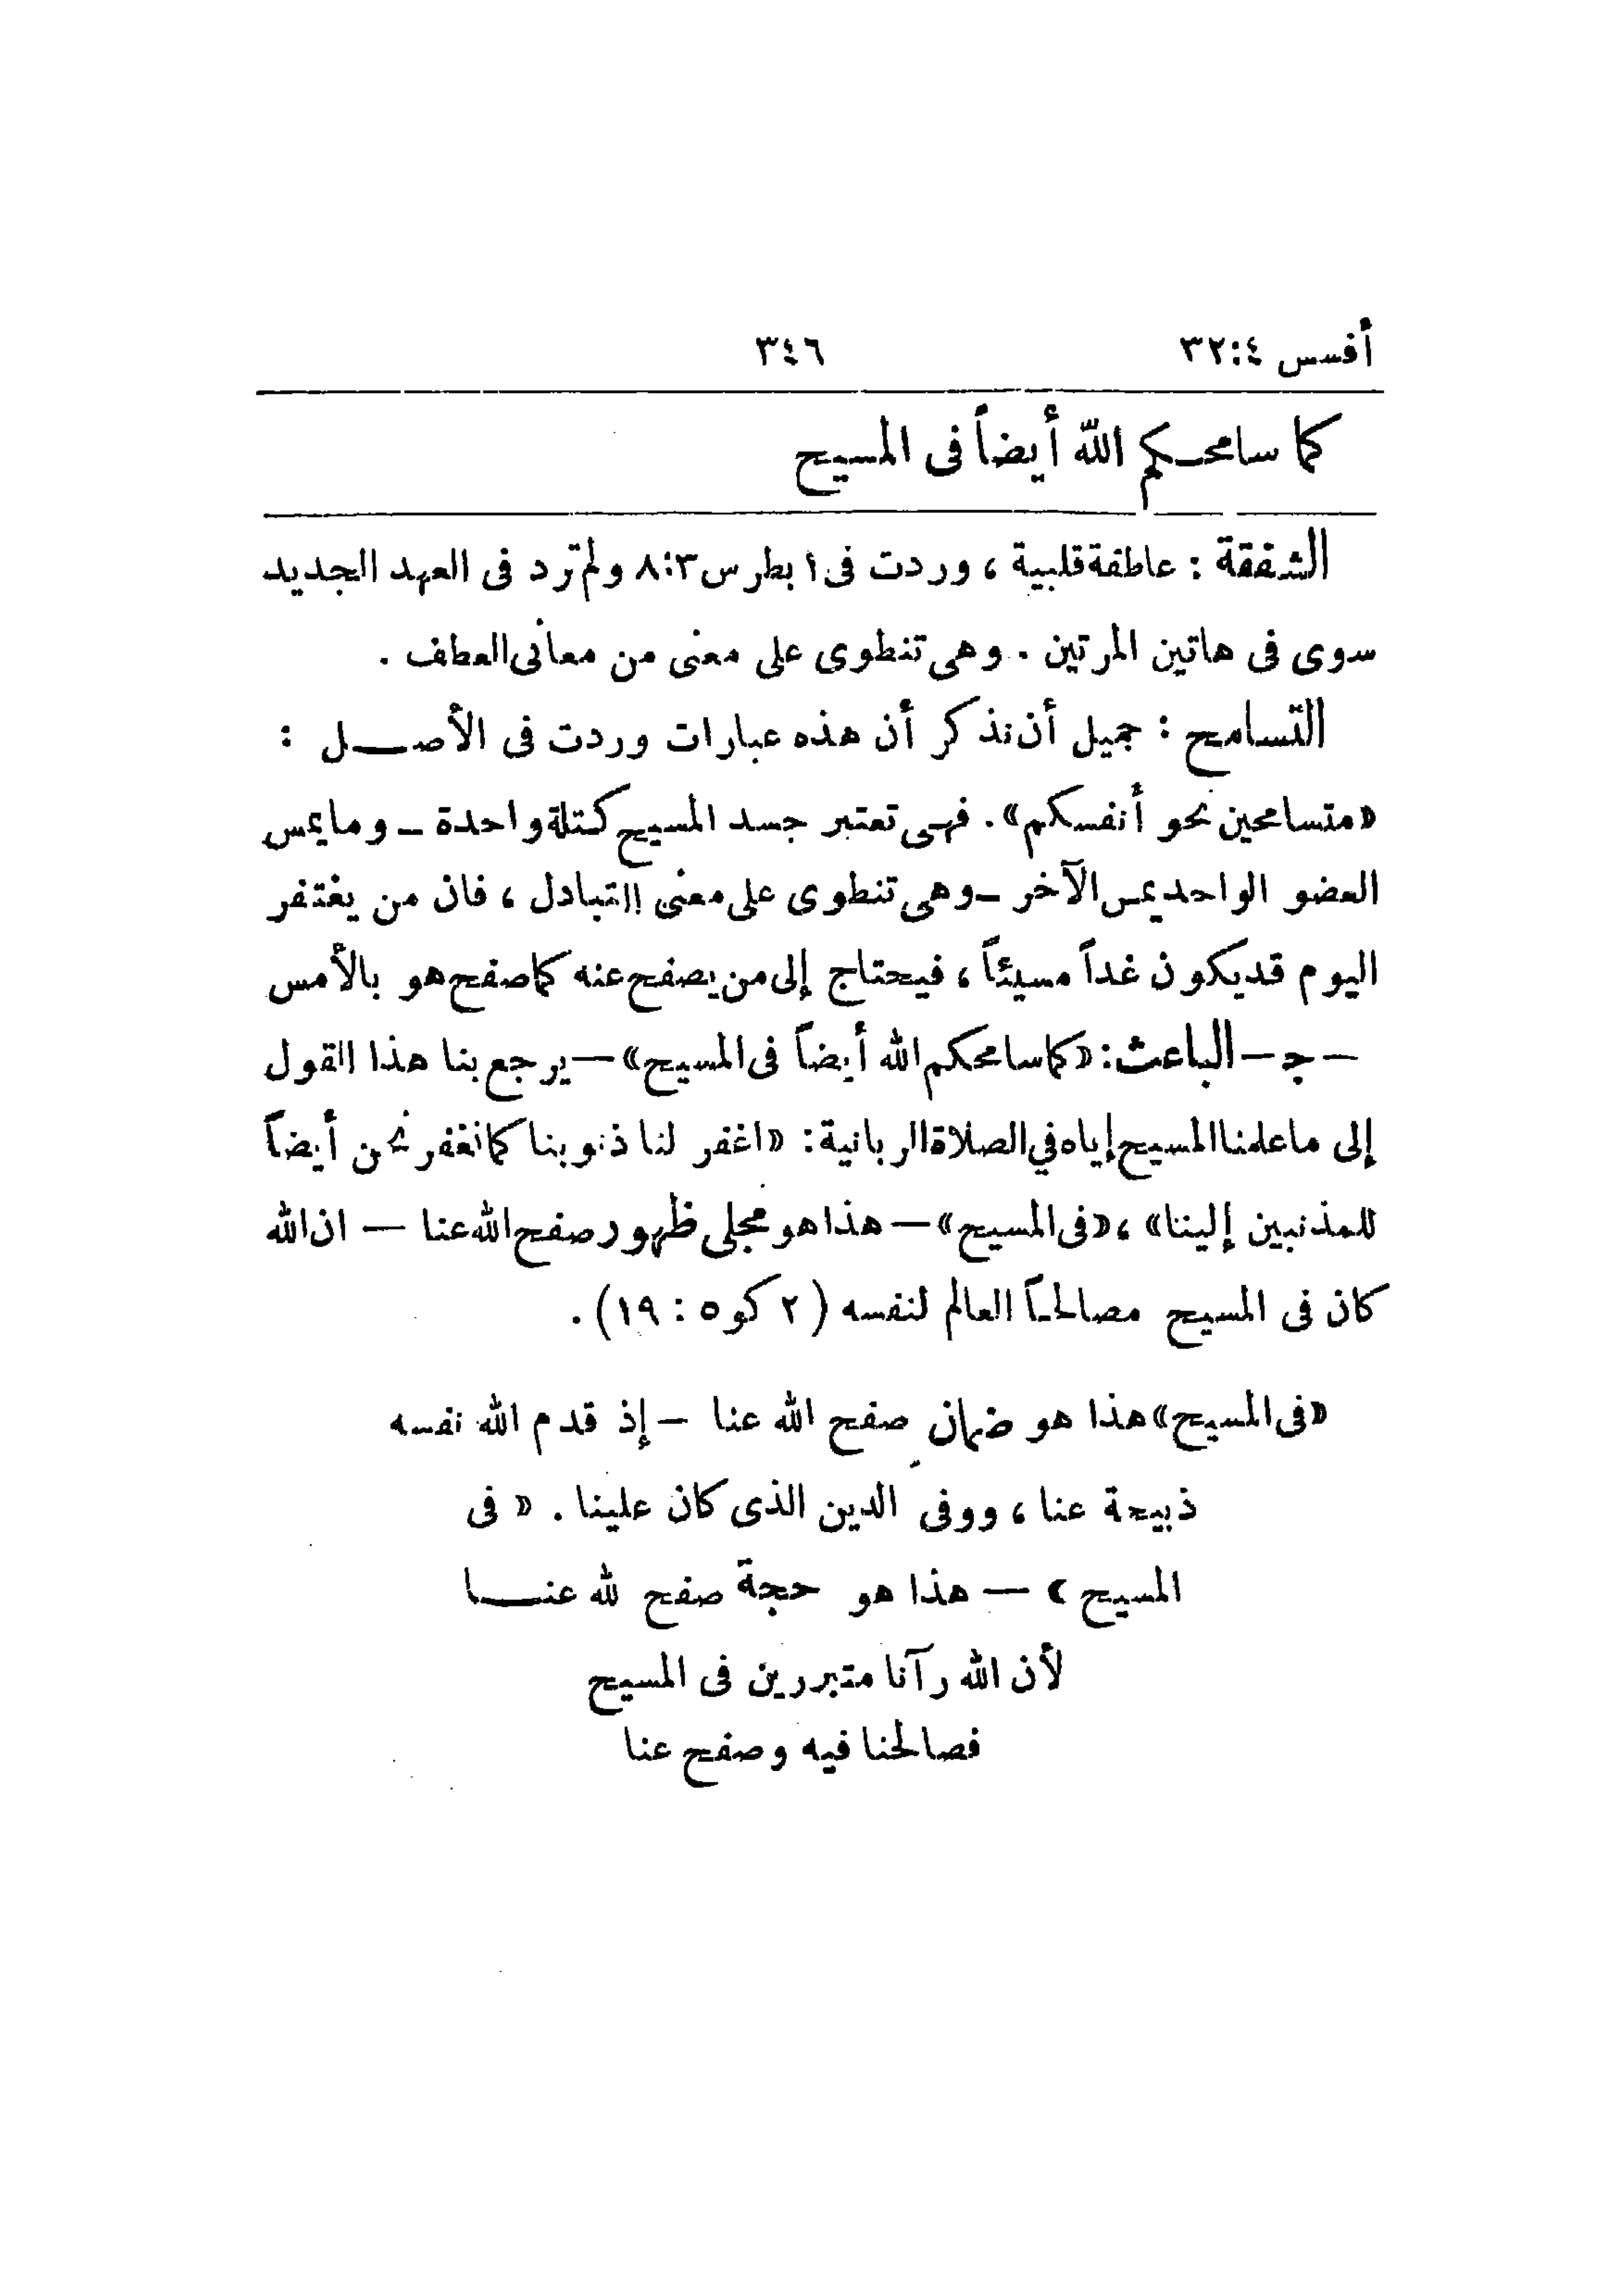 أفسس ٣٢:٤ ٣٤٦
كما سامحكم الله أيضاً فى المسيح
الشفقة : عاطفة قلبية ، وردت فى ١ بطرس ٨:٣ ولم ترد فى العهد الجديد
سوى فى هاتين المرتين . وهى تنطوى على معنى من معانى العطف .
التسامح : جميل أن نذكر أن هذه عبارات وردت فى الأصــل :
«متسامحين نحو أنفسكم» . فهى تعتبر جسد المسيح كتلة واحدة – وما يمس
العضو الواحد يمس الآخر – وهى تنطوى على معنى التبادل ، فان من يغتفر
اليوم قد يكون غداً مسيئاً ، فيحتاج إلى من يصفح عنه كما صفح هو بالأمس
– جـ – الباعث : «كما سامحكم الله أيضاً فى المسيح» – يرجع بنا هذا القول
إلى ما علمنا المسيح إياه في الصلاة الربانية : «اغفر لنا ذنوبنا كما نغفر نحن أيضاً
للمذنبين إلينا» ، «فى المسيح» – هذا هو مجلى ظهور صفح الله عنا – ان الله
كان فى المسيح مصالحاً العالم لنفسه (٢ كو ٥ : ١٩) .
«فى المسيح» هذا هو ضمان صفح الله عنا – إذ قدم الله نفسه
ذبيحة عنا ، ووفى الدين الذى كان علينا . « فى
المسيح » – هذا هو حجة صفح لله عنـــا
لأن الله رآنا متبررين فى المسيح
فصالحنا فيه وصفح عنا